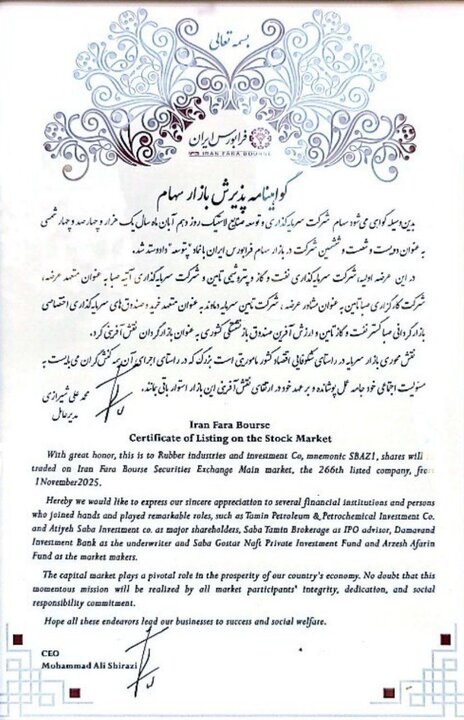 بسمه تعالی
فرابورس ایران
IRAN FARA BOURSE
گواهینامه پذیرش بازار سهام
بدین وسیله گواهی می‌شود سهام شرکت سرمایه‌گذاری و توسعه صنایع لاستیک روز دهم آبان ماه سال یک هزار و چهارصد و چهار شمسی
به عنوان دویست و شصت و ششمین شرکت در بازار سهام فرابورس ایران با نماد "پتوسعه" دادوستد شد.
در این عرضه اولیه، شرکت سرمایه‌گذاری نفت و گاز و پتروشیمی تامین و شرکت سرمایه‌گذاری آتیه صبا به عنوان متعهد عرضه،
شرکت کارگزاری صبا تامین به عنوان مشاور عرضه، شرکت تامین سرمایه دماوند به عنوان متعهد خرید و صندوق‌های سرمایه‌گذاری اختصاصی
بازارگردانی صبا گستر نفت و گاز تامین و ارزش آفرین صندوق بازنشستگی کشوری به عنوان بازارگردان نقش آفرینی کرد.
نقش محوری بازار سرمایه در راستای شکوفایی اقتصاد کشور ماموریتی است بزرگ که در راستای اجرای آن همه کنش‌گران می‌بایست به
مسئولیت اجتماعی خود جامه عمل پوشانده و بر عهد خود در ارتقای نقش آفرینی این بازار استوار باقی بمانند.
محمد علی شیرازی
مدیرعامل
Iran Fara Bourse
Certificate of Listing on the Stock Market
With great honor, this is to Rubber industries and investment Co, mnemonic SBAZ1, shares will
traded on Iran Fara Bourse Securities Exchange Main market, the 266th listed company, from
1November2025.
Hereby we would like to express our sincere appreciation to several financial institutions and persons
who joined hands and played remarkable roles, such as Tamin Petroleum & Petrochemical Investment Co.
and Atiyeh Saba Investment co. as major shareholders, Saba Tamin Brokerage as IPO advisor, Damavand
Investment Bank as the underwriter and Saba Gostar Naft Private Investment Fund and Arzesh Afarin
Fund as the market makers.
The capital market plays a pivotal role in the prosperity of our country's economy. No doubt that this
momentous mission will be realized by all market participants' integrity, dedication, and social
responsibility commitment.
Hope all these endeavors lead our businesses to success and social welfare.
CEO
Mohammad Ali Shirazi